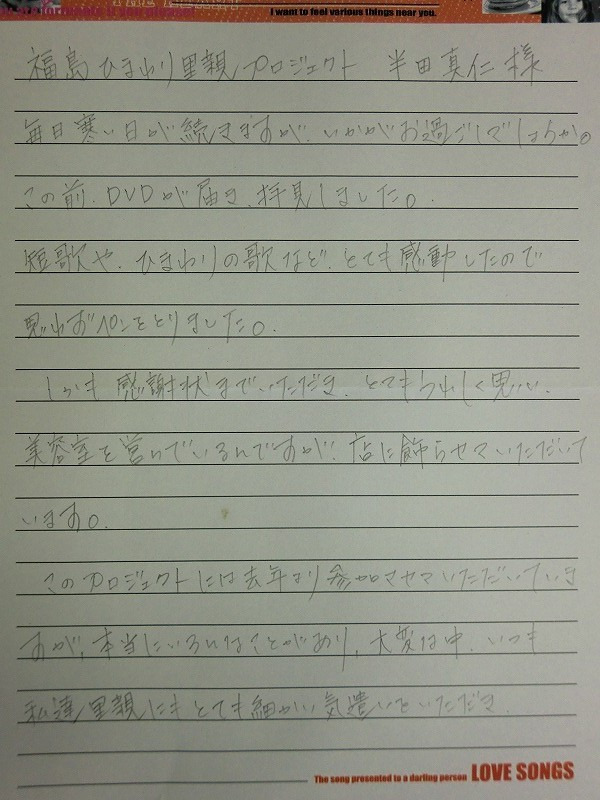 I want to feel various things near you.
福島ひまわり里親プロジェクト 半田真仁様
毎日寒い日が続きますが、いかがお過ごしでしょうか。
この前、DVDが届き、拝見しました。
短歌や、ひまわりの歌など、とても感動したので
思わずペンをとりました。
しかも感謝状までいただき、とてもうれしく思い、
美容室を営んでいるんですが、店に飾らせていただいて
います。
このプロジェクトには去年より参加させていただいていま
すが、本当にいろいろなことがあり、大変な中、いつも
私達里親にもとても細かい気遣いをいただき、
The song presented to a darling person LOVE SONGS